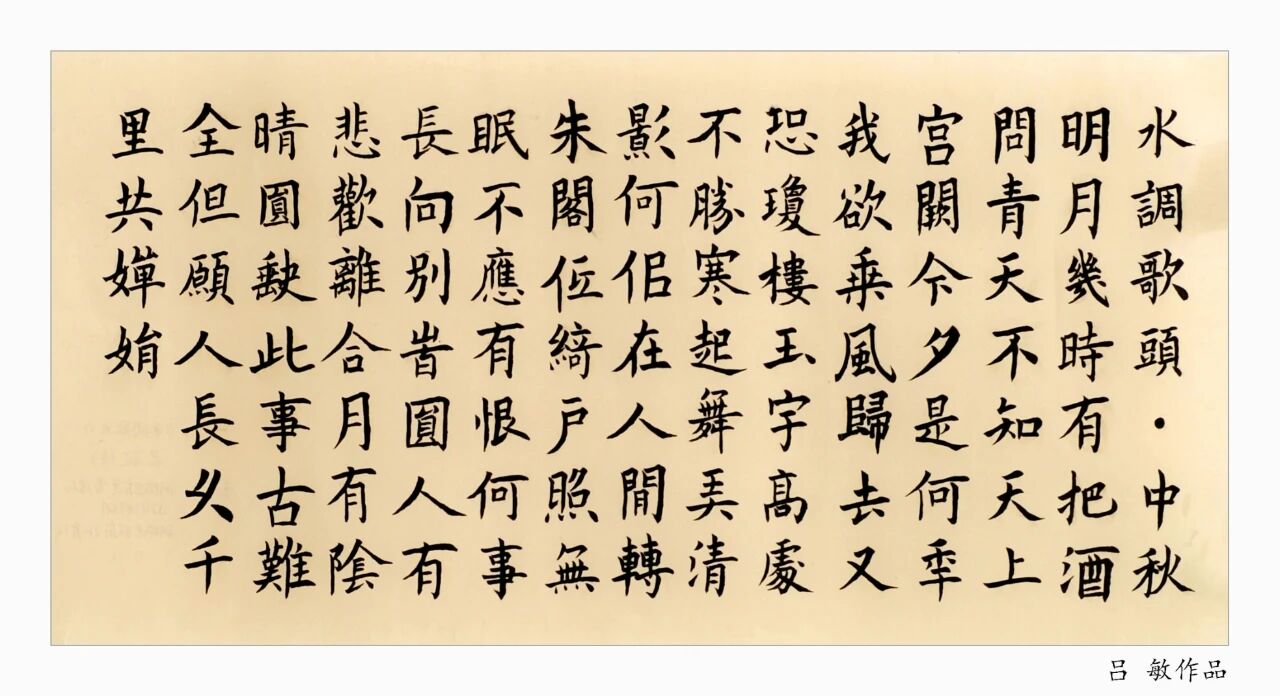 水調歌頭·中秋
明月幾時有把酒
問青天不知天上
宮闕今夕是何年
我欲乘風歸去又
恐瓊樓玉宇高處
不勝寒起舞弄清
影何佀在人間轉
朱閣低綺戶照無
眠不應有恨何事
長向別旹圓人有
悲歡離合月有陰
晴圓缺此事古難
全但願人長久千
里共嬋娟
吕 敏作品